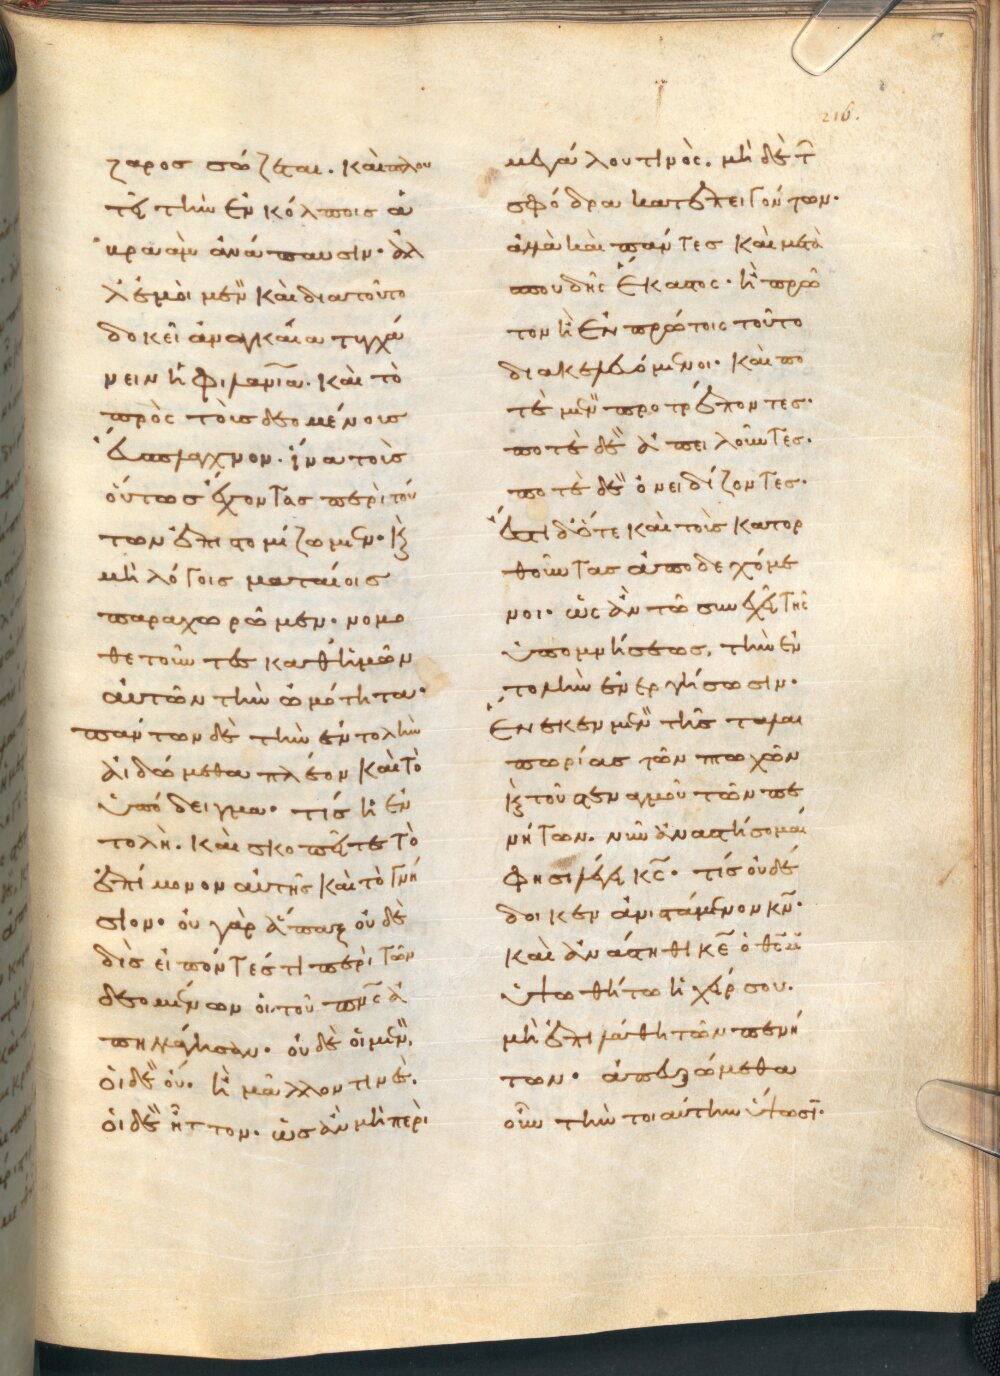 216.
ζαρος σώζεται. καὶ πλου
τεῖ τὴν ἐν κόλποις ἁ
βραὰμ ἀνάπαυσιν· ἀλ
λ' ἐμοὶ μὲν καὶ διὰ τοῦτο
δοκεῖ ἀναγκαία τυγχά
νειν ἡ φιλανία. καὶ τὸ
πρὸς τοῖς δεομένοις
εὔσπλαγχνον. ἵνα τοῖς
οὕτως ἔχοντας περὶ τού
των ἐπιστομίζωμεν. κ(αὶ)
μὴ λόγοις ματαίοις
παραχωρῶμεν. νομο
θετοῦντες καθ' ἡμῶν
αὐτῶν τὴν ὠμότητα·
πάντων δὲ τὴν ἐντολὴν
αἰδώμεθα πλέον καὶ τὸ
ὑπόδειγμα· τίς ἡ ἐν
τολὴ. καὶ σκοπεῖτε τὸ
ἐπίμονον αὐτῆς καὶ τὸ γνή
σιον. οὐ γὰρ ἅπαξ οὐδὲ
δὶς εἰπόντές τι περὶ τῶν
δεομένων οἱ τοῦ πνς ἀ
πηλλάγησαν. οὐδὲ οἱ μὲν,
οἱ δὲ οὔ. ἢ μᾶλλόν τινές.
οἱ δὲ ἧττον. ὡς ἂν μὴ περὶ
μεγάλου τινὸς. μὴ δὲ τ
σφόδρα κατεπειγόντων.
ἀλλὰ καὶ πάντες καὶ μετὰ
σπουδῆς ἕκαστος. ἢ πρῶ
τον ἢ ἐν πρώτοις τοῦτο
διακελευόμενοι. καὶ πο
τὲ μὲν προτρέποντες.
ποτὲ δὲ ἀπειλοῦντες.
ποτὲ δὲ ὀνειδίζοντες.
ἔστι δ' ὅτε καὶ τοὺς κατορ
θοῦντας ἀποδεχόμε
νοι. ὡς ἂν τῶ συνεχεῖ τῆς
ὑπομνήσεως, τὴν ἐν
τολὴν ἐνεργήσωσιν.
ἕνεκεν μὲν τῆς ταλαι
πωρίας τῶν πτωχῶν
κ(αὶ) τοῦ στεναγμοῦ τῶν πε
νήτων. νῦν ἀναστήσομαι
φησι λέγει κς. τίς οὐ δέ
δοικεν ἀνιστάμενον κν.
καὶ ἀνάστηθι κε ὁ θς μου
ὑψωθήτω ἡ χείρ σου.
μὴ ἐπιλάθη τῶν πενή
των. ἀπευξώμεθα
οὖν τὴν τοιαύτην ὕψωσιν.